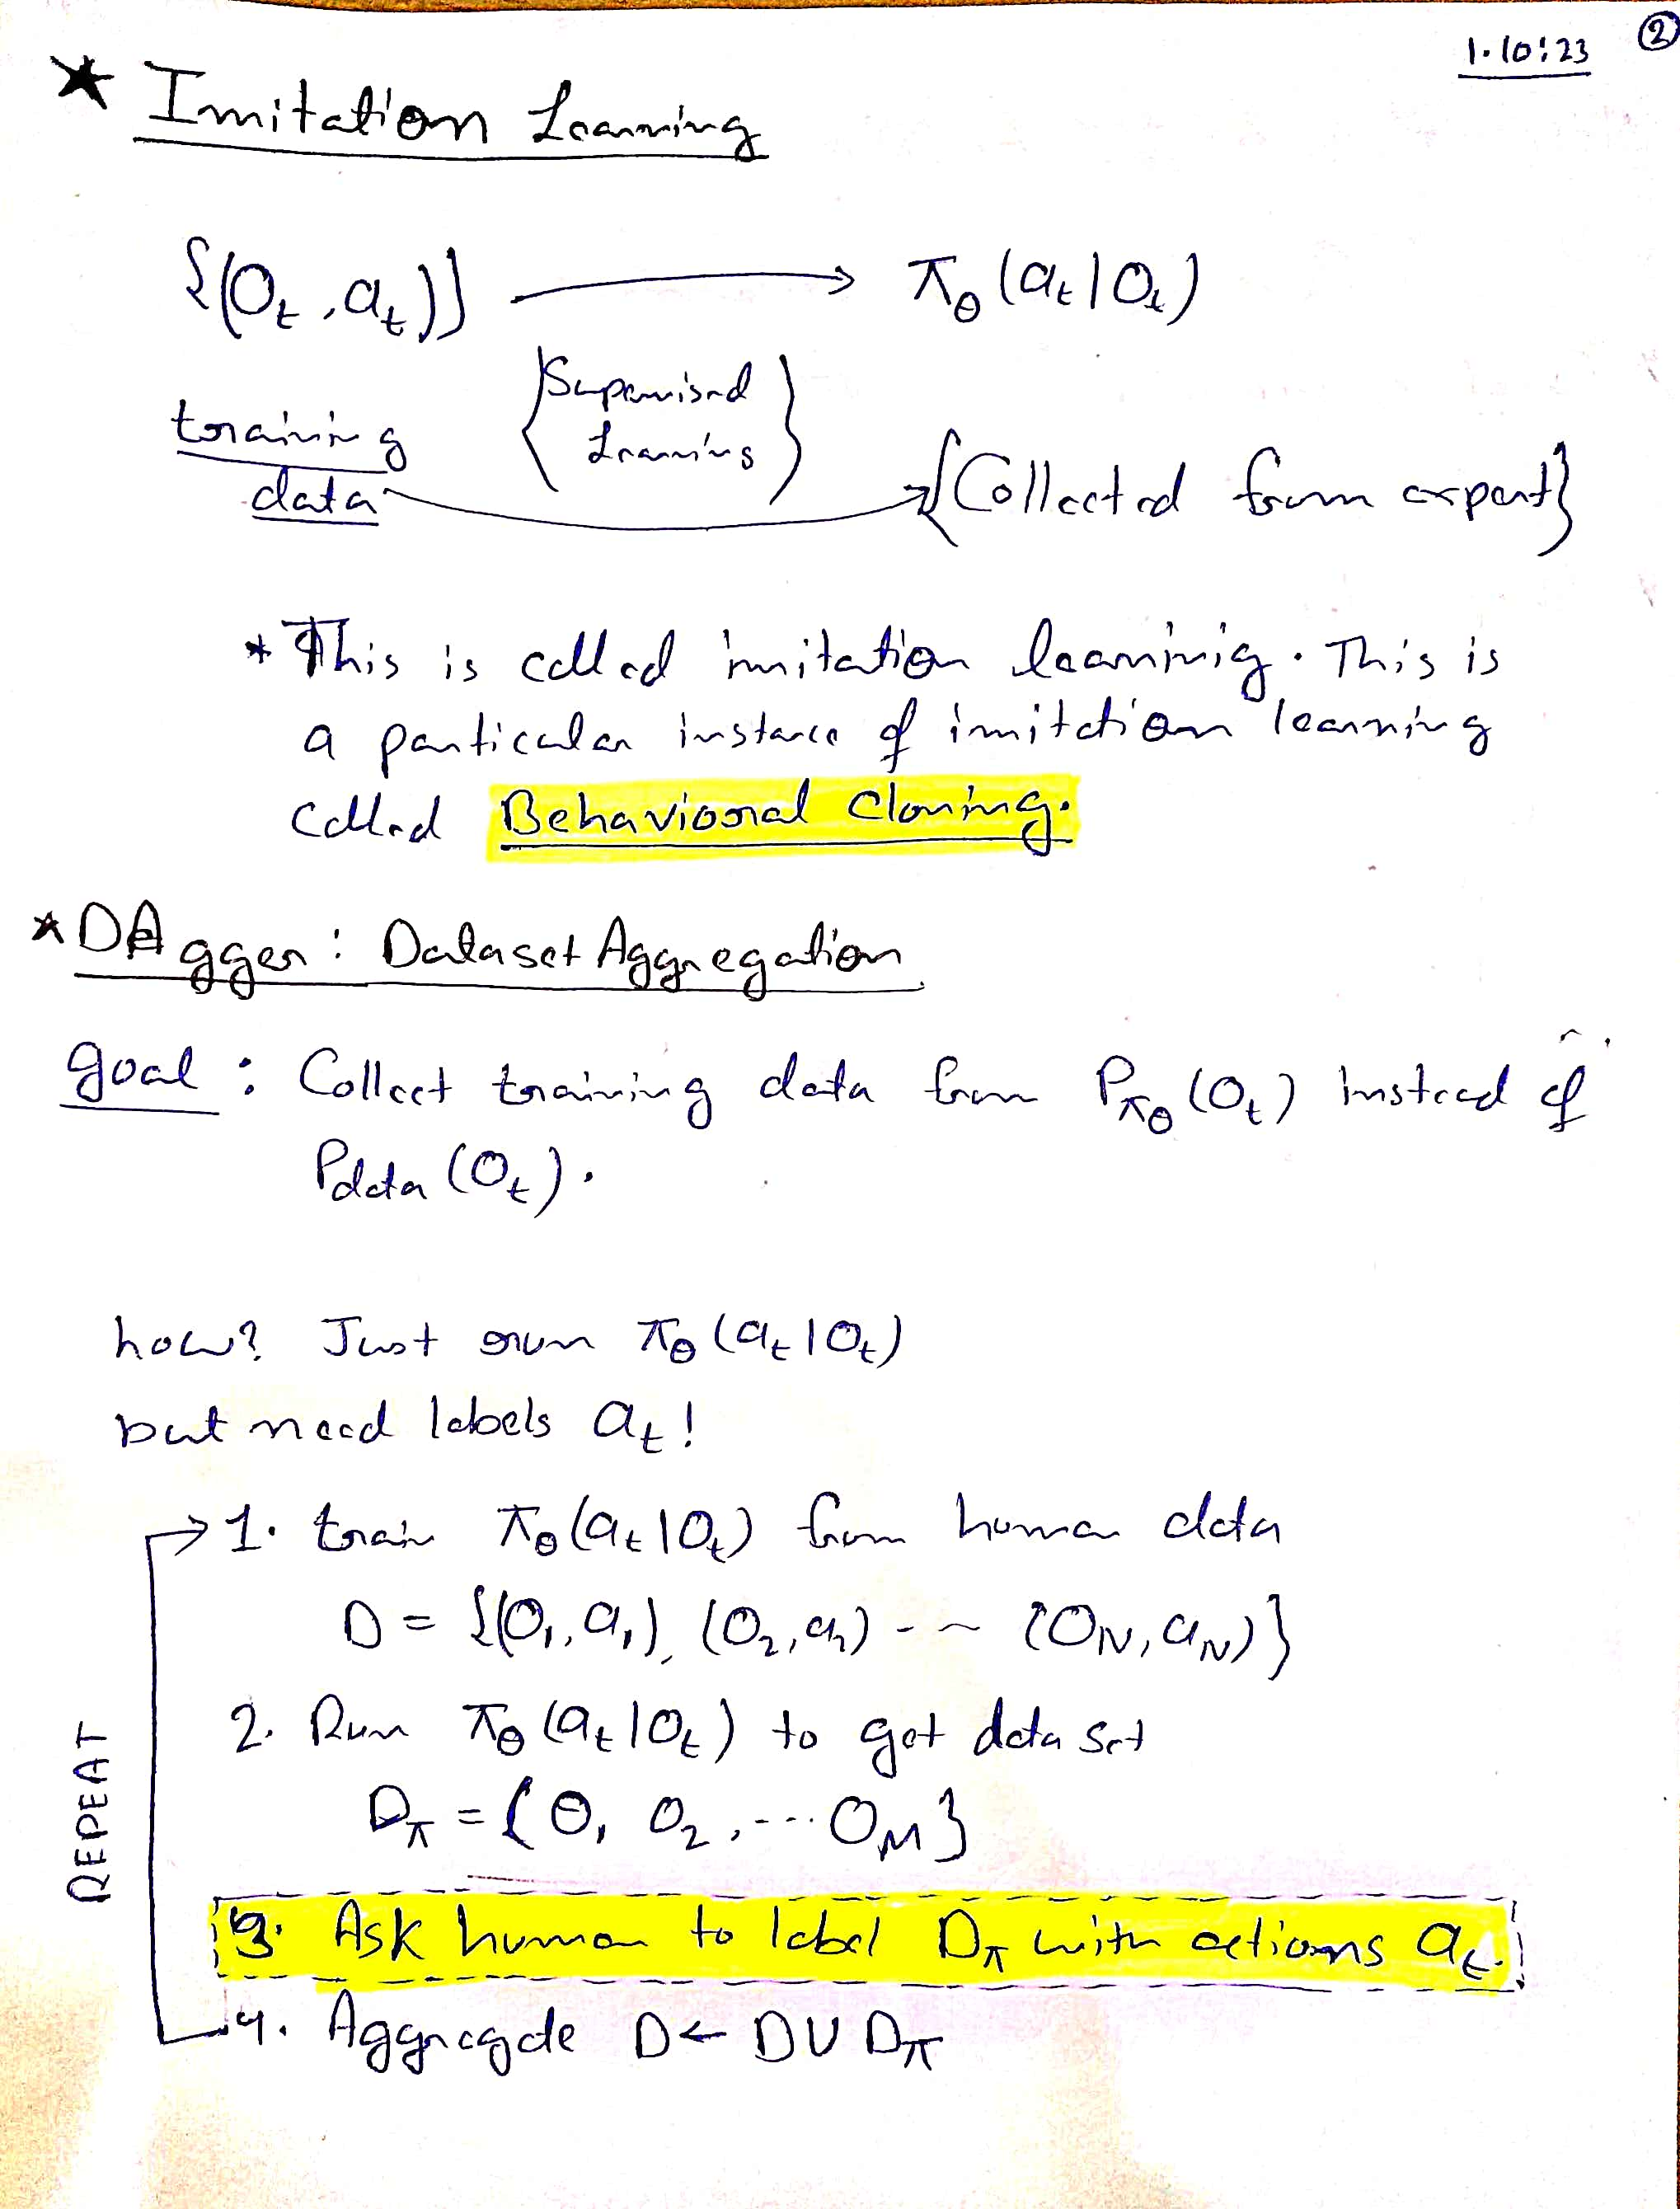 1.10:23 ②
* Imitation Learning
{(O_t, a_t)} → π_θ(a_t|O_t)
training data
{Supervised Learning}
{Collected from expert}
* This is called imitation learning. This is
a particular instance of imitation learning
called Behavioral Cloning.
* DAgger: Dataset Aggregation
goal: Collect training data from P_π_θ(O_t) instead of
P_data(O_t).
how? Just run π_θ(a_t|O_t)
but need labels a_t!
1. train π_θ(a_t|O_t) from human data
D = {(O_1, a_1), (O_2, a_2) --~ (O_N, a_N)}
2. Run π_θ(a_t|O_t) to get data set
D_π = {O_1 O_2, ... O_M}
3. Ask human to label D_π with actions a_t.
4. Aggregate D ← D ∪ D_π
REPEAT